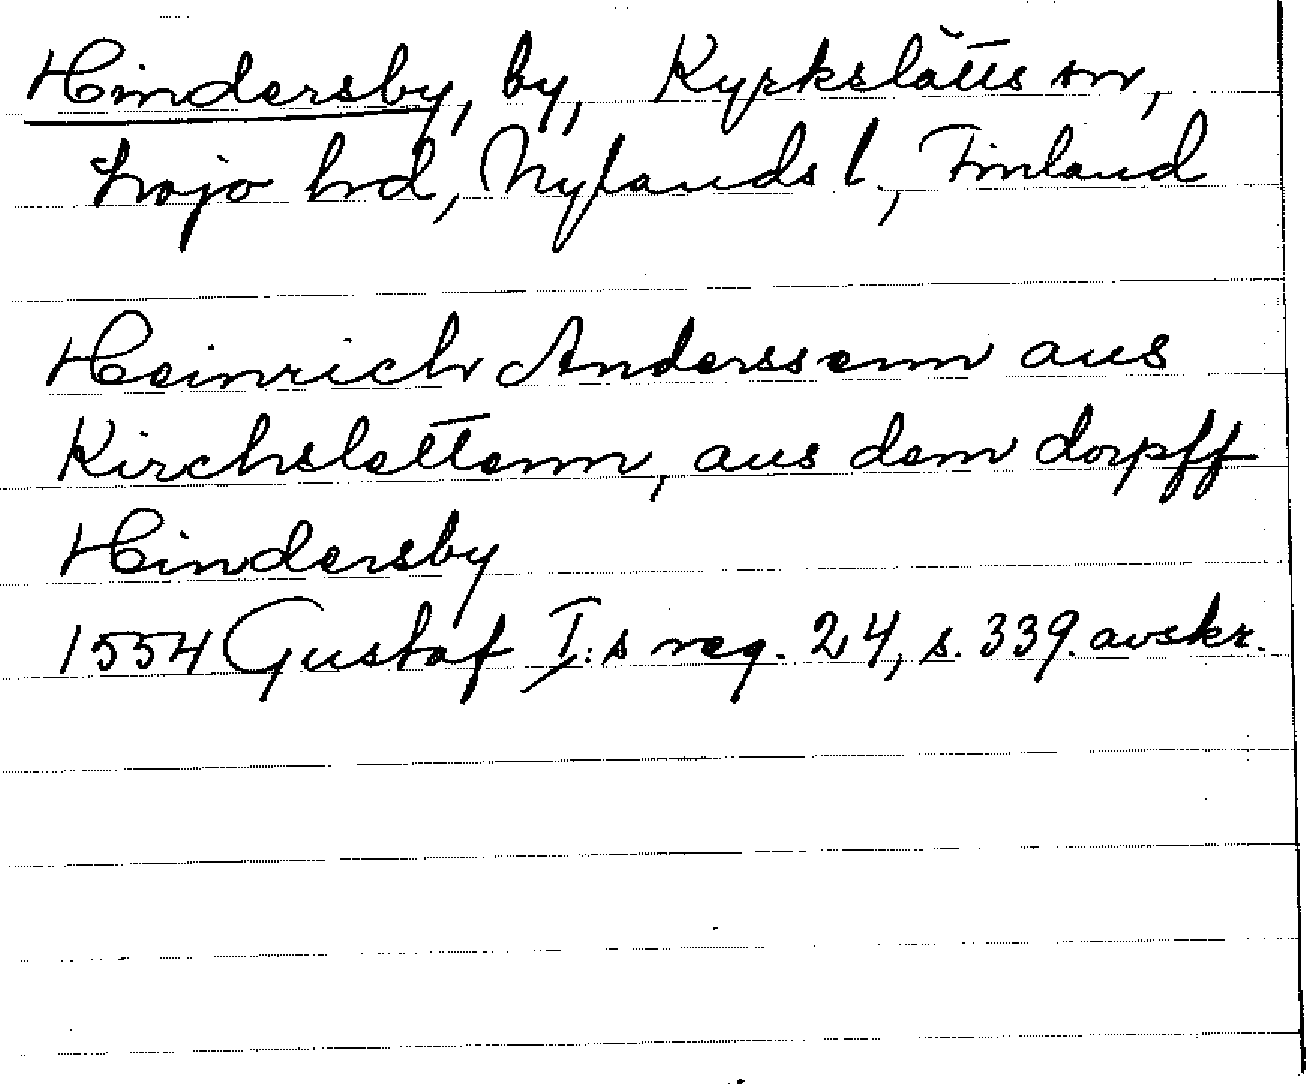 Hindersby, by, Kyrkslätts sn,
Lojo hrd, Nylands l., Finland
Heinrich Anderssenn aus
Kirchslettenn, aus dem dorpff
Hindersby
1554 Gustaf I:s reg. 24, s. 339. avskr.